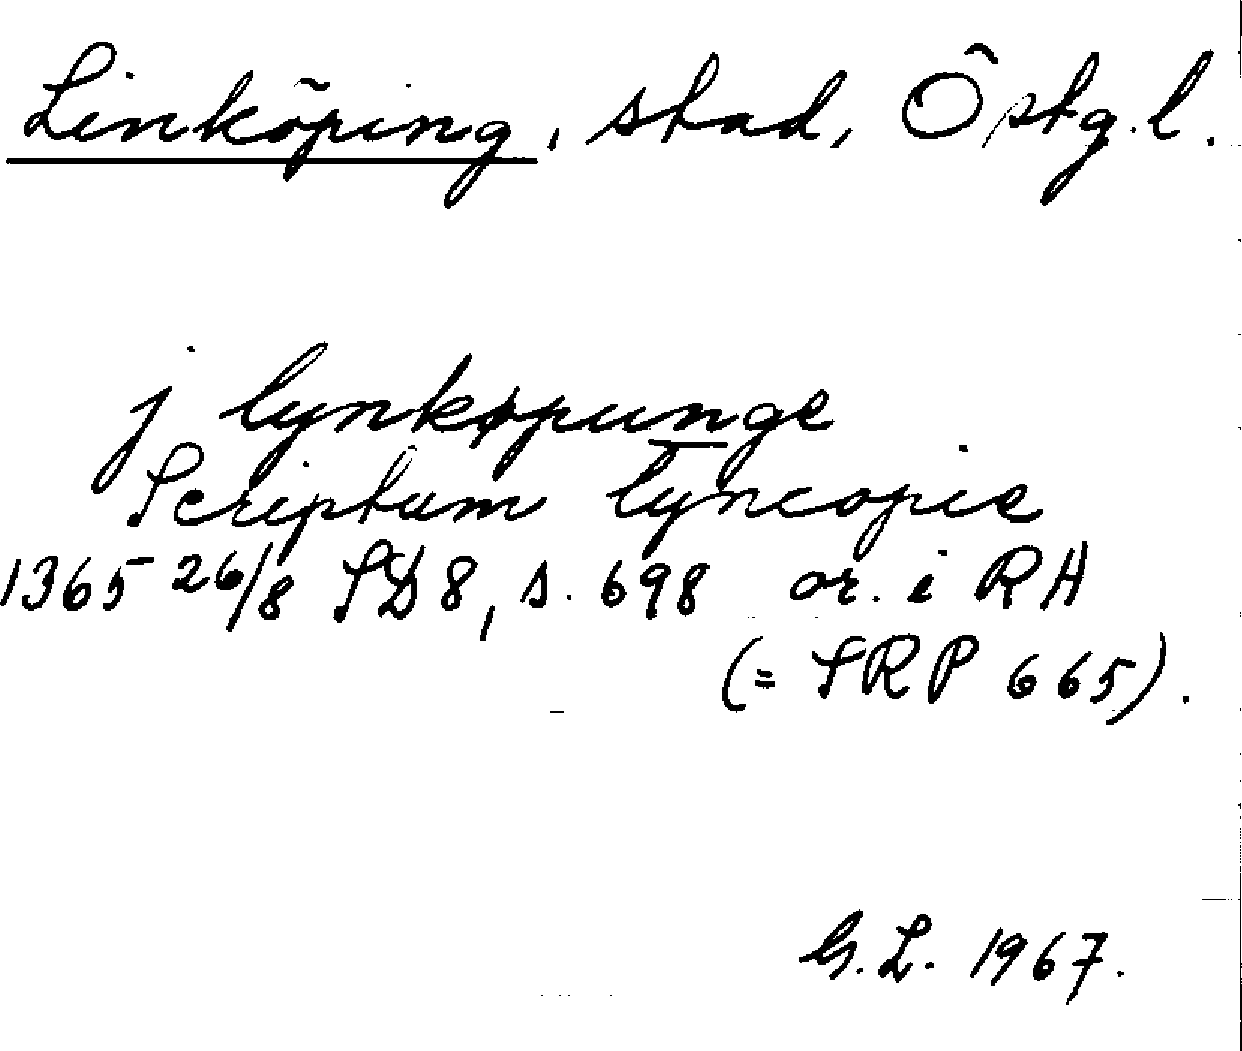 Linköping, stad, Östg. l.
j lynkøpunge
Scriptum lyncopie
1365 26/8 SD8, s. 698 or. i RA
(= SRP 665).
G.L. 1967.